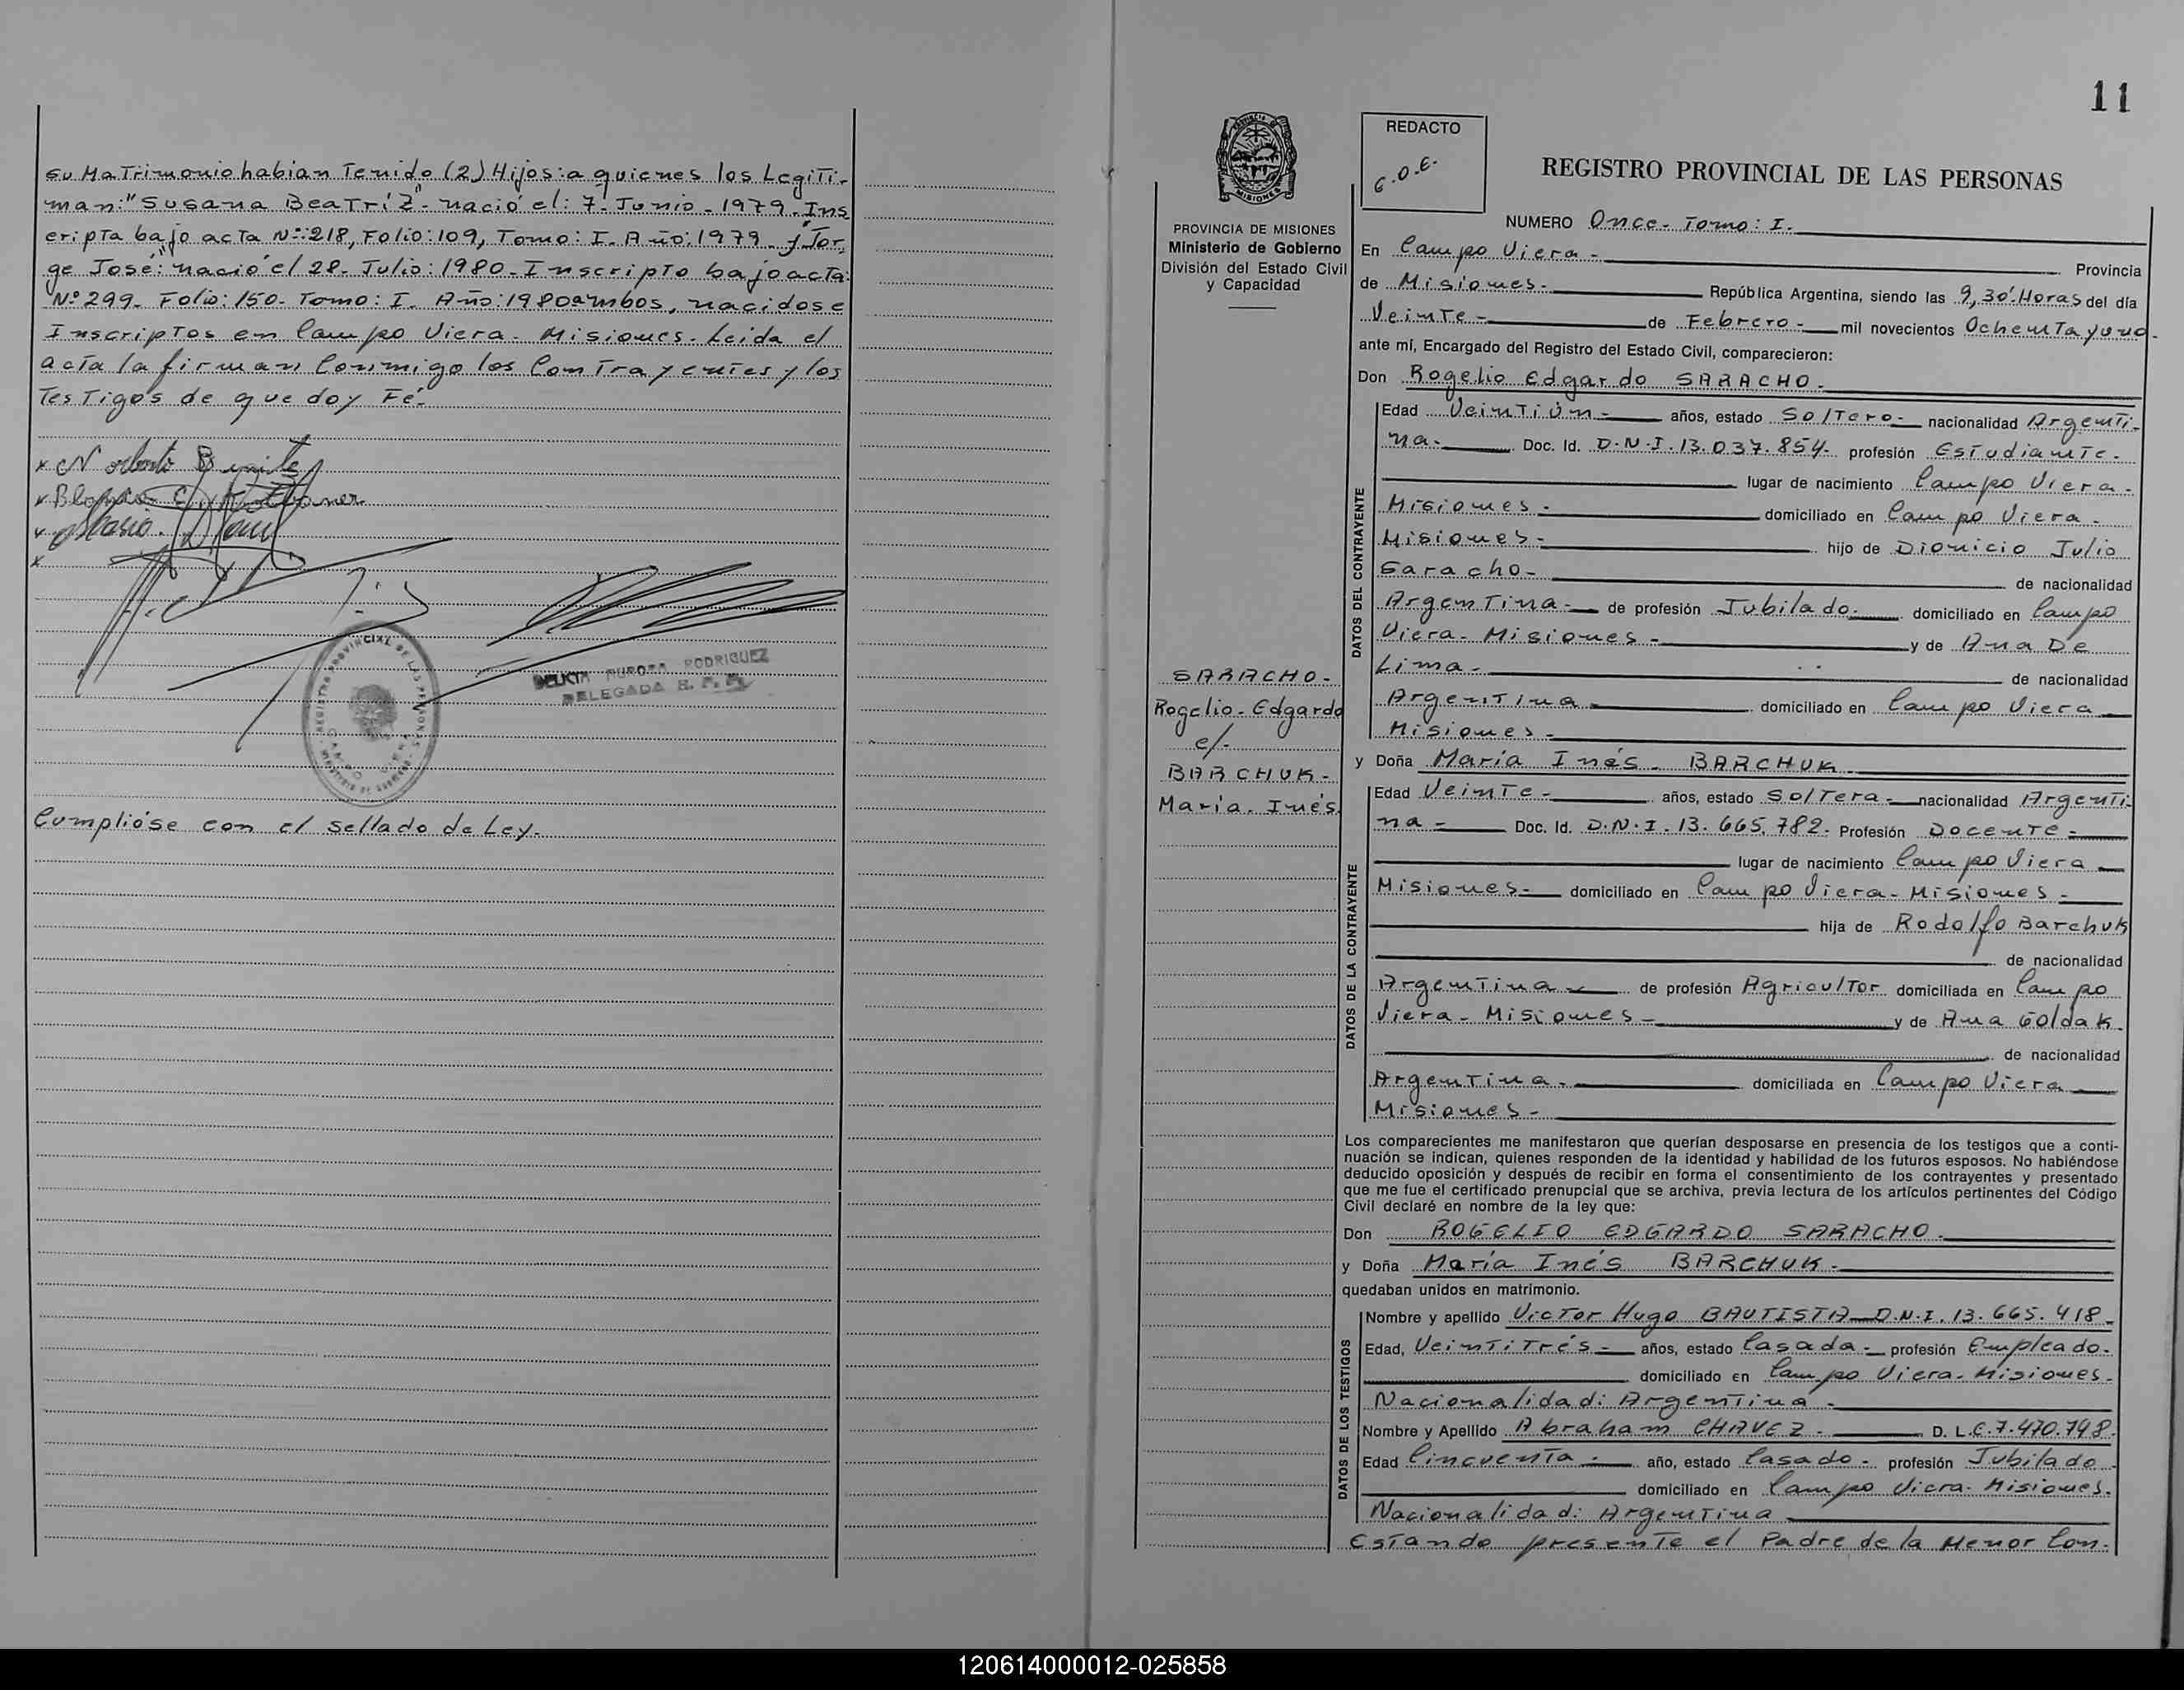 su Matrimonio habian Tenido (2) Hijos: a quienes los Legiti-
man: "Susana Beatríz"- nació el: 7- Junio - 1979. Ins
cripta bajo acta Nº: 218, Folio: 109, Tomo: I. Año: 1979- y "Jor
ge José": nació el 28- Julio: 1980- Inscripto bajo acta:
Nº 299- Folio: 150- Tomo: I. Año: 1980 ambos, nacidos e
Inscriptos en Campo Viera- Misiones. Leida el
acta la firman Conmigo los Contrayentes y los
Testigos de que doy Fé.-
REGISTRO PROVINCIAL DE LAS PERSONAS
RODRIGUEZ
DELEGADA R. P. P.
Cumplióse con el sellado de Ley.-
11
PROVINCIA DE MISIONES
Ministerio de Gobierno
División del Estado Civil
y Capacidad
SARACHO-
Rogelio- Edgardo
c/.
BARCHUK-
María- Inés.
REDACTO
C.O.E.
REGISTRO PROVINCIAL DE LAS PERSONAS
NUMERO Once- Tomo: I.
En Campo Viera - Provincia
de Misiones- República Argentina, siendo las 9,30' Horas del día
Veinte- de Febrero- mil novecientos Ochenta y uno-
ante mí, Encargado del Registro del Estado Civil, comparecieron:
Don Rogelio Edgardo SARACHO-
DATOS DEL CONTRAYENTE
Edad Veintiún- años, estado Soltero- nacionalidad Argenti-
na- Doc. Id. D.N.I. 13.037.854- profesión Estudiante-
lugar de nacimiento Campo Viera-
Misiones- domiciliado en Campo Viera-
Misiones- hijo de Dionicio Julio
Saracho- de nacionalidad
Argentina- de profesión Jubilado- domiciliado en Campo
Viera- Misiones- y de Ana De
Lima- de nacionalidad
Argentina- domiciliado en Campo Viera
Misiones-
y Doña María Inés- BARCHUK-
DATOS DE LA CONTRAYENTE
Edad Veinte- años, estado Soltera- nacionalidad Argenti-
na- Doc. Id. D.N.I. 13.665.782- Profesión Docente-
lugar de nacimiento Campo Viera
Misiones- domiciliado en Campo Viera- Misiones-
hija de Rodolfo Barchuk
de nacionalidad
Argentina- de profesión Agricultor domiciliada en Campo
Viera- Misiones- y de Ana Goldak.
de nacionalidad
Argentina- domiciliada en Campo Viera
Misiones-
Los comparecientes me manifestaron que querían desposarse en presencia de los testigos que a conti-
nuación se indican, quienes responden de la identidad y habilidad de los futuros esposos. No habiéndose
deducido oposición y después de recibir en forma el consentimiento de los contrayentes y presentado
que me fue el certificado prenupcial que se archiva, previa lectura de los artículos pertinentes del Código
Civil declaré en nombre de la ley que:
Don ROGELIO EDGARDO SARACHO-
y Doña María Inés BARCHUK-
quedaban unidos en matrimonio.
DATOS DE LOS TESTIGOS
Nombre y apellido Victor Hugo BAUTISTA D.N.I. 13.665.418-
Edad, Veintitrés- años, estado Casada- profesión Empleado-
domiciliado en Campo Viera- Misiones-
Nacionalidad: Argentina-
Nombre y Apellido Abraham CHAVEZ- D. L.E. 7.470.748-
Edad Cincuenta- año, estado Casado- profesión Jubilado
domiciliado en Campo Viera- Misiones-
Nacionalidad: Argentina
Estando presente el Padre de la Menor Con-
120614000012-025858